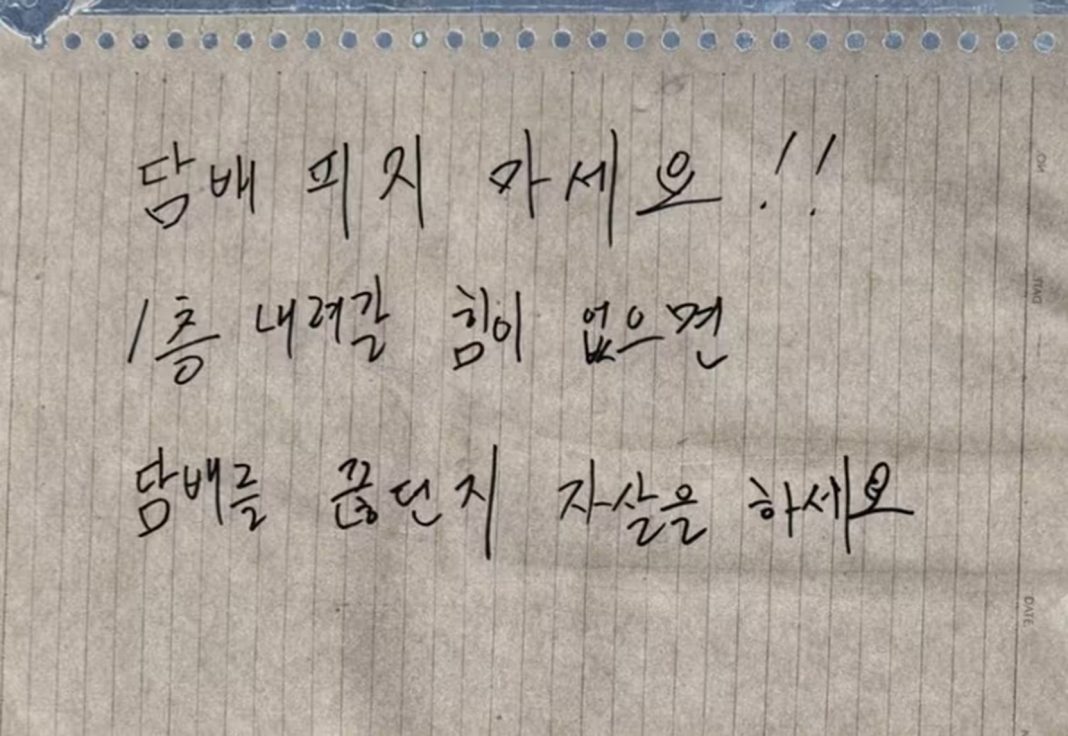 담배 피지 마세요!!
1층 내려갈 힘이 없으면
담배를 끊던지 자살을 하세요
DATE